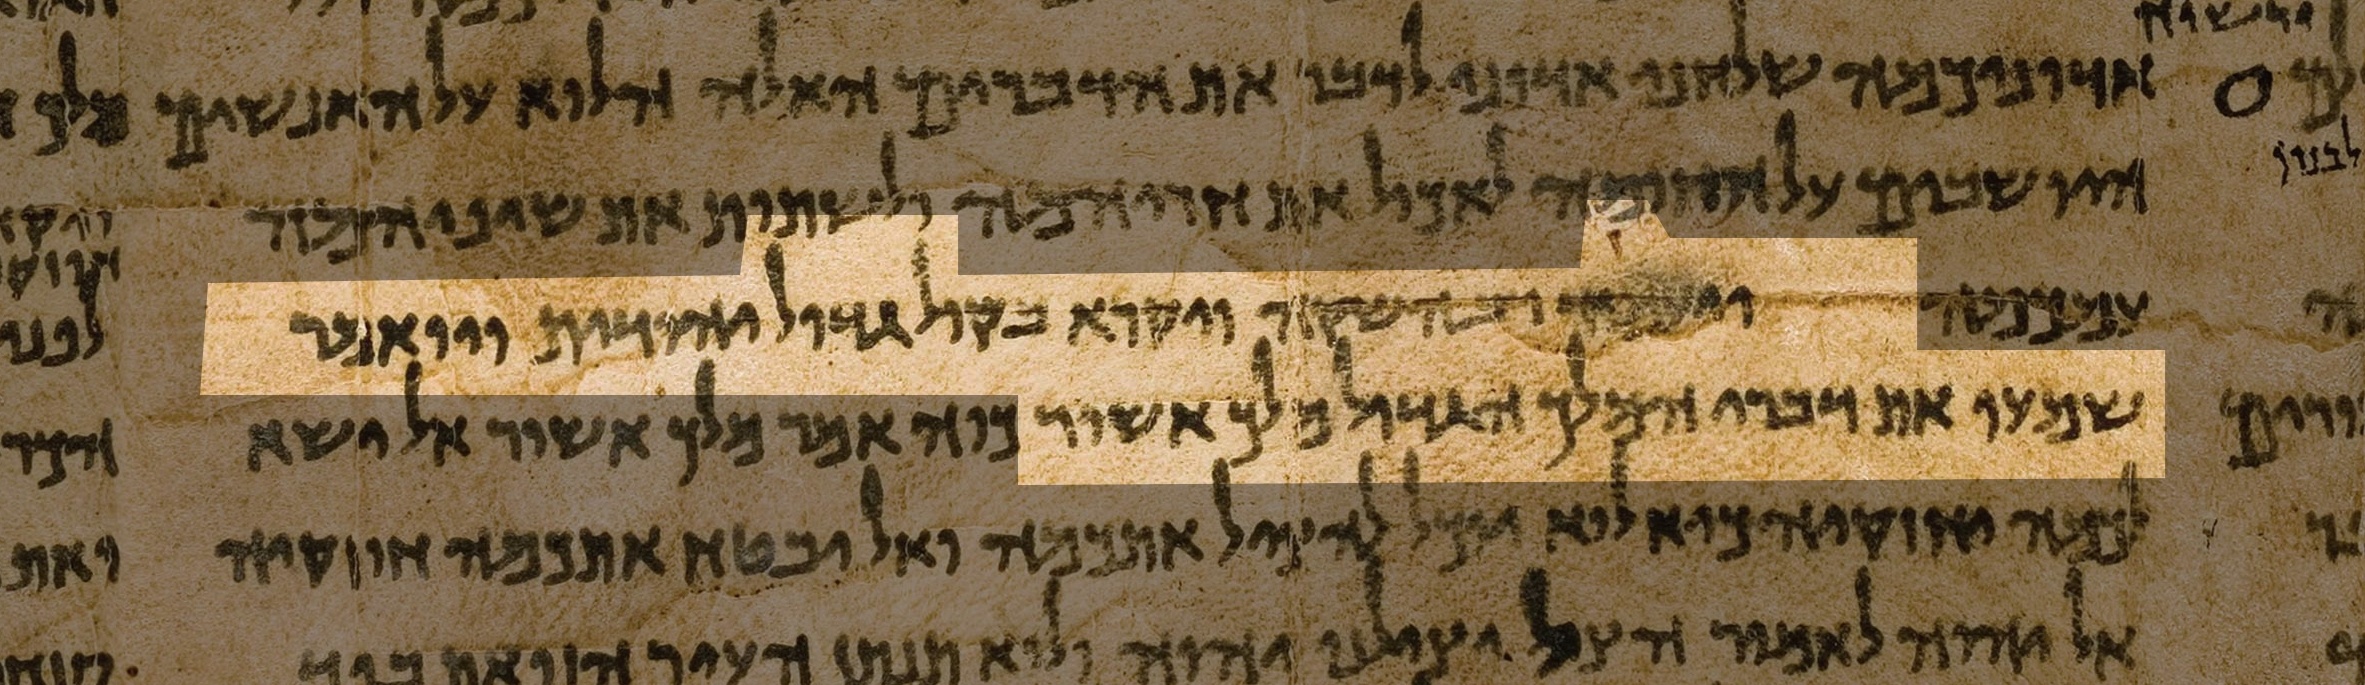 אדוניכמה שלחני אדוני לדבר את הדברים האלה הלוא על האנשים
היושבים על החומה לאכול את חריהמה ולשתות את שיניהמה
עמכמה ויעמוד רבשקה ויקרא בקול גדול יהודית ויואמר
שמעו את דברי המלך הגדול מלך אשור כוה אמר מלך אשור אל ישא
לכמה יחוזקיה כיא לוא יוכל להציל אתכמה ואל יבטח אתכמה חוזקיה
אל יהוה לאמור הצל יצילנו יהוה ולוא תנתן העיר הזואת ביד